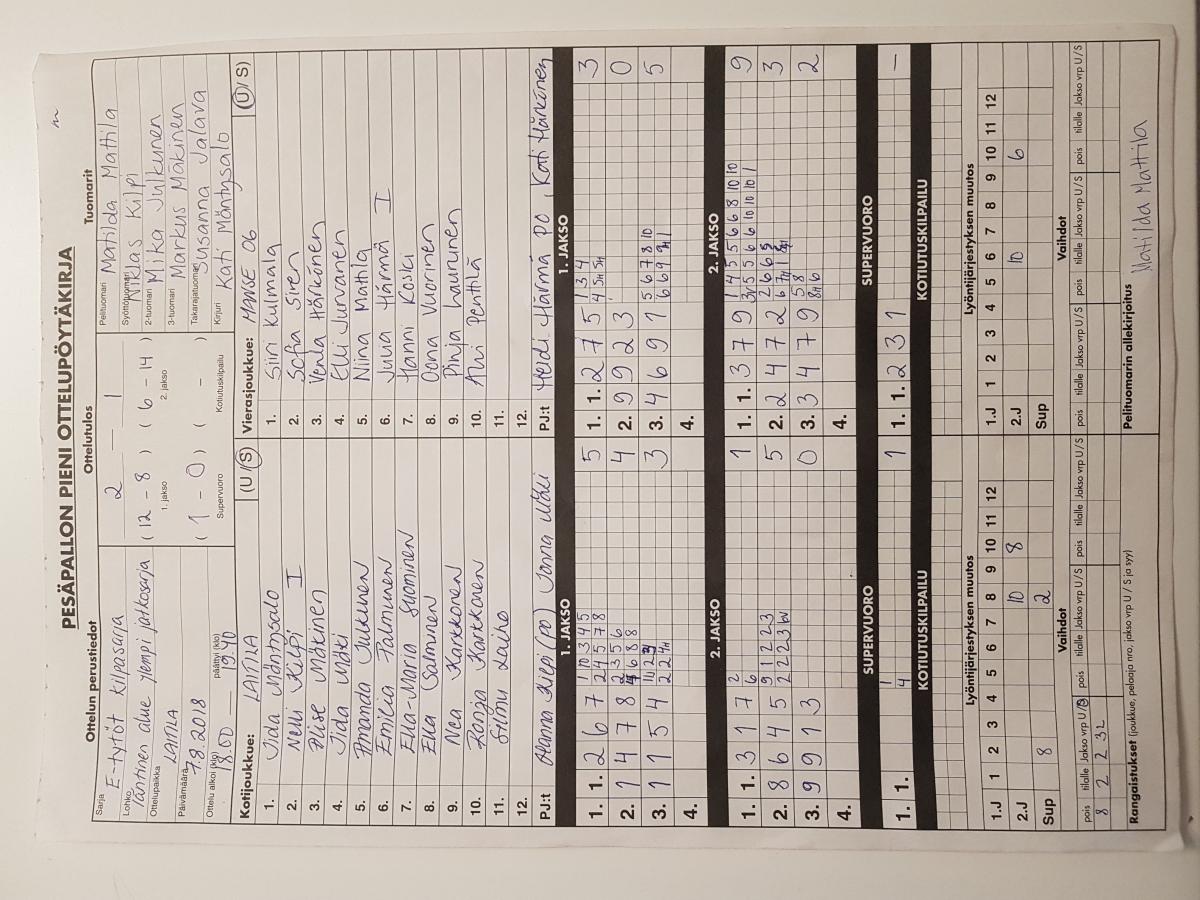 PESÄPALLON PIENI OTTELUPÖYTÄKIRJA
Ottelun perustiedot Ottelutulos Tuomarit
Sarja E-tytöt kilpasarja
Lohko Läntinen alue ylempi jatkosarja
Ottelupaikka LAITILA
Päivämäärä 7.8.2018
Ottelu alkoi (klo) 18.00 päättyi (klo) 19.40
2 — 1
( 12 - 8 ) ( 6 - 14 )
1. jakso 2. jakso
( 1 - 0 ) ( - )
Supervuoro Kotiutuskilpailu
Pelituomari Matilda Mattila
Syöttötuomari Niklas Kilpi
2-tuomari Mika Julkunen
3-tuomari Markus Mäkinen
Takarajatuomari Susanna Jalava
Kirjuri Kati Mäntysalo
Kotijoukkue: LAITILA (U/S)
1. Iida Mäntysalo
2. Nelli Kilpi I
3. Alise Mäkinen
4. Iida Mäki
5. Amanda Julkunen
6. Emilia Palmunen
7. Ella-Maria Suominen
8. Ella Salminen
9. Nea Karkkonen
10. Ronja Karkkonen
11. Silmu Laiho
12.
PJ:t Kilpi (PO) Jonna Mäki
Vierasjoukkue: MANSE 06 (U/S)
1. Siiri Kulmala
2. Sofia Siren
3. Venla Härkönen
4. Elli Jurvanen
5. Niina Mattila
6. Juua Härmä I
7. Hanni Koski
8. Oona Vuorinen
9. Pinja Laurunen
10. Anni Penttilä
11.
12.
PJ:t Heidi Härmä PO, Kati Härkönen
1. JAKSO 1. JAKSO
1. 1. 2 6 7 1 10 3 4 5 5
2 4 5 7 8
2. 1 4 7 8 2 3 5 6 4
6 8 8
3. 1 1 5 4 3
4.
1. 1. 2 7 5 1 3 4 3
4 5H 5H
2. 9 9 2 3 0
3. 4 6 9 1 5 6 7 8 10 5
6 6 9
4.
2. JAKSO 2. JAKSO
1. 1. 3 1 7 2 1
6
2. 8 6 4 5 9 1 2 2 3 5
2 2 2 3
3. 9 9 1 3 0
4.
1. 1. 3 7 9 1 4 5 5 6 6 8 10 10 9
5 5 6 6 10 10 10 1
2. 2 4 7 2 2 6 6 3
6 7H 1
3. 3 4 7 9 5 8 2
8H 6
4.
SUPERVUORO SUPERVUORO
1. 1. 1 1
4
1. 1. 2 3 1 —
KOTIUTUSKILPAILU KOTIUTUSKILPAILU
Lyöntijärjestyksen muutos Lyöntijärjestyksen muutos
1.J 1 2 3 4 5 6 7 8 9 10 11 12
2.J 10 8
Sup 8 2
1.J 1 2 3 4 5 6 7 8 9 10 11 12
2.J 10 6
Sup
Vaihdot Vaihdot
pois tilalle Jakso vrp U/S pois tilalle Jakso vrp U/S pois tilalle Jakso vrp U/S pois tilalle Jakso vrp U/S pois tilalle Jakso vrp U/S pois tilalle Jakso vrp U/S
8 2 2
Rangaistukset (joukkue, pelaaja nro, jakso vrp U / S ja syy)
Pelituomarin allekirjoitus
Matilda Mattila